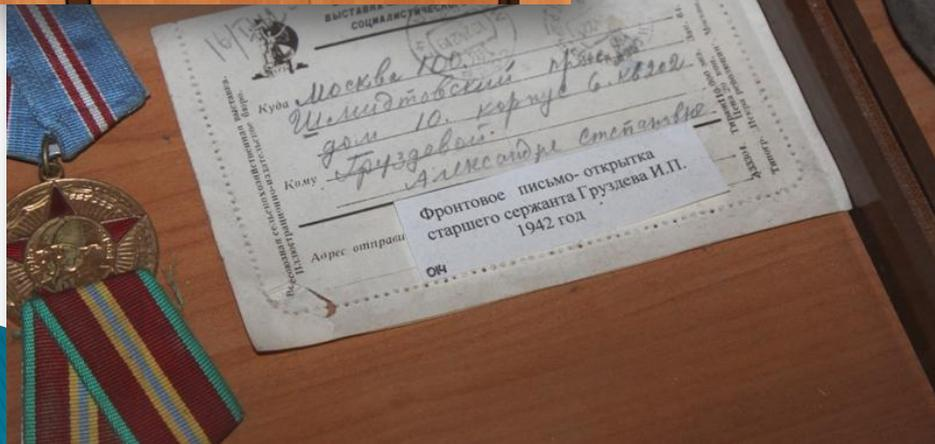 ВЫСТАВКА
СОЦИАЛИСТИЧЕСКОГО
16/
Куда Москва 100.
Шмидтовский проезд
дом 10. корпус 6. кв 202.
Кому Груздевой
Александре Степановне
Адрес отправи
Фронтовое письмо- открытка
старшего сержанта Груздева И.П.
1942 год
ОНЧ
Всесоюзная сельскохозяйственная выставка.
Иллюстрационно-издательское бюро.
Типогр. Искра революции.
Тираж 10.000 экз.
Цена 20 коп.